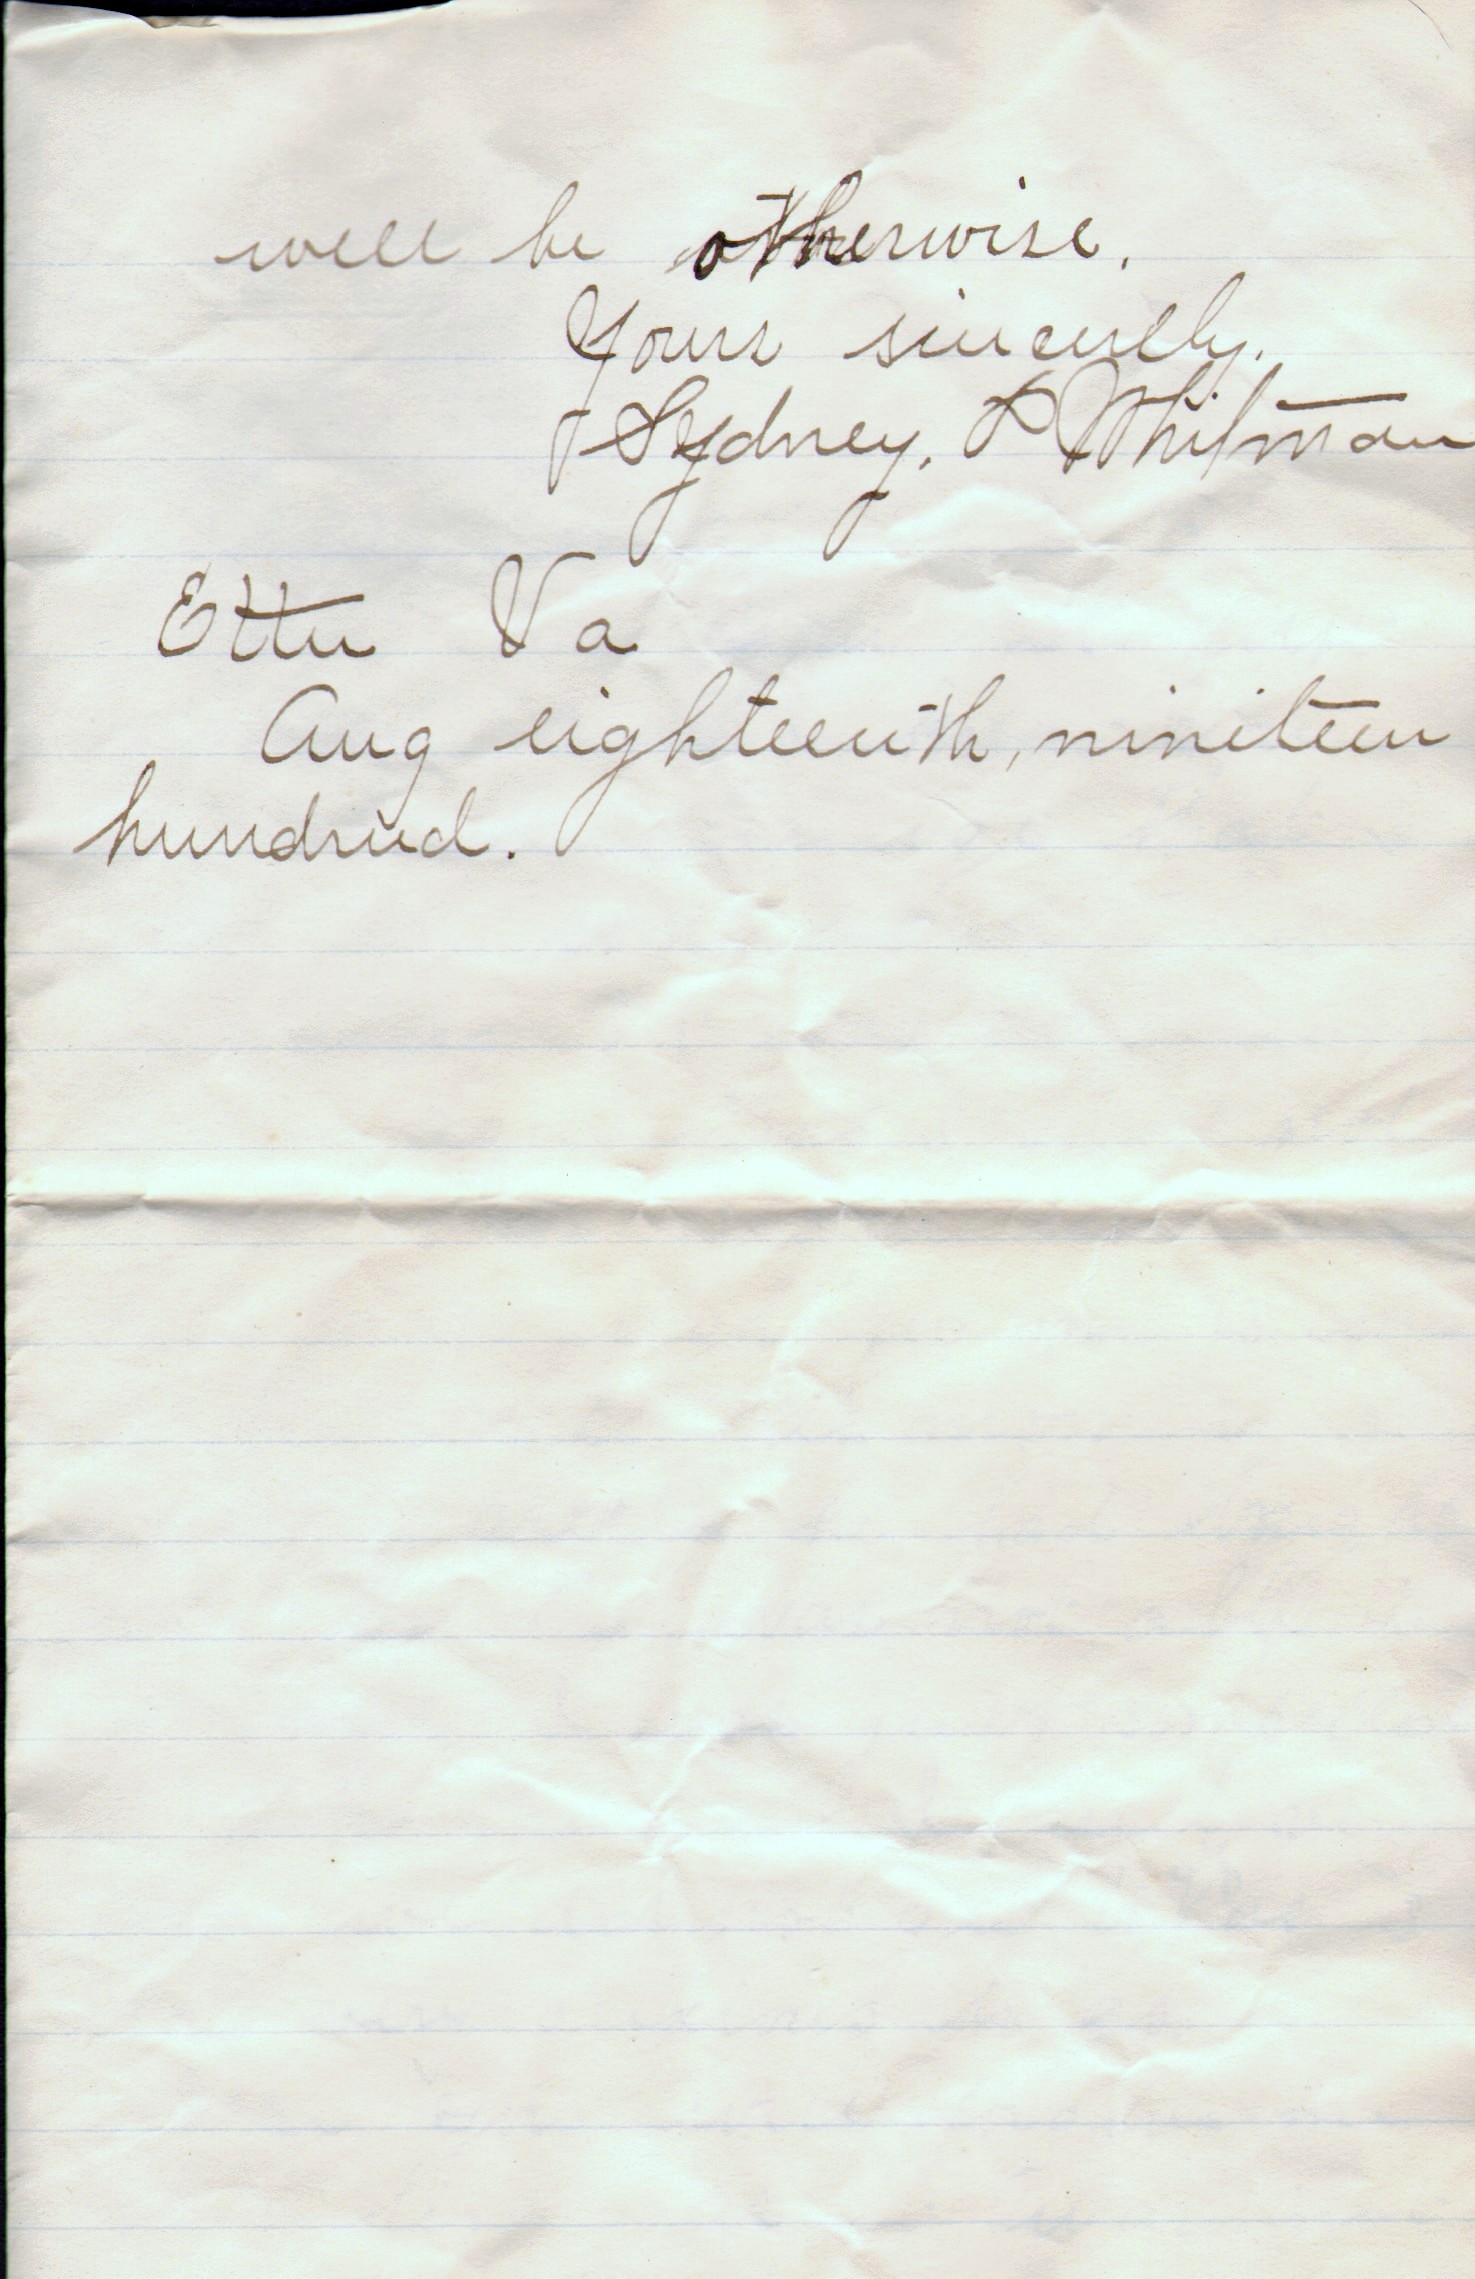 will be otherwise.
Yours sincerely.
Sydney. P Whitman
Etter Va
Aug eighteenth, nineteen
hundred.